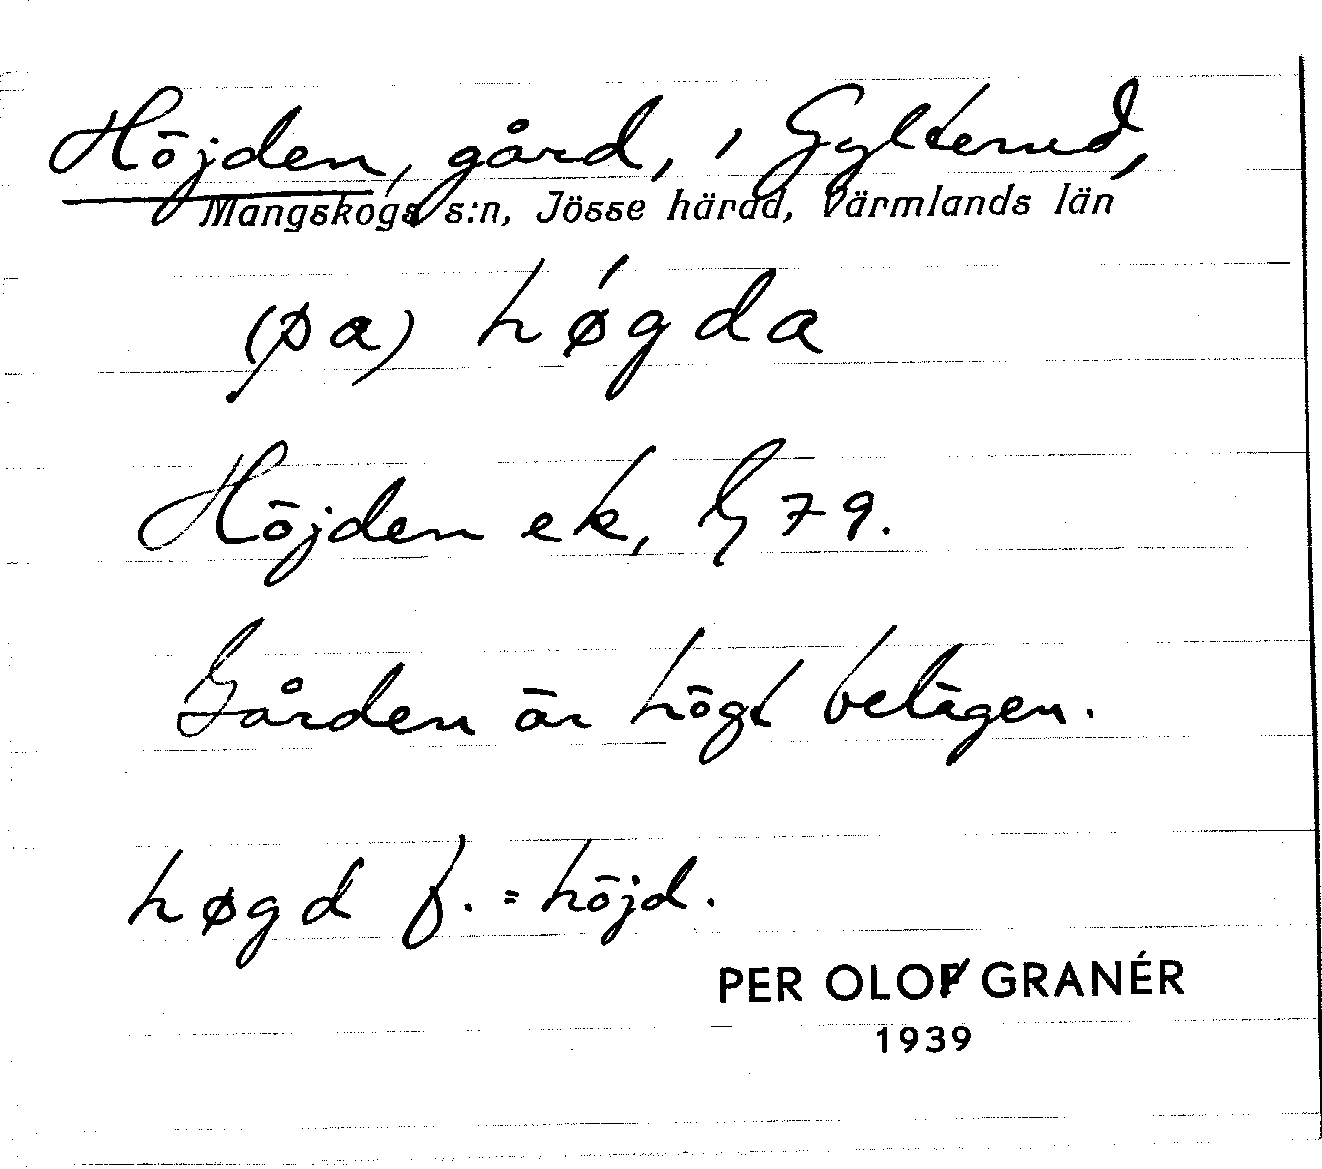 Höjden, gård, i Gylterud,
Mangskogs s:n, Jösse härad, Värmlands län
(pa) hǿgda
Höjden ek, G 79.
Gården är högt belägen.
høgd f. = höjd.
PER OLOF GRANÉR
1939